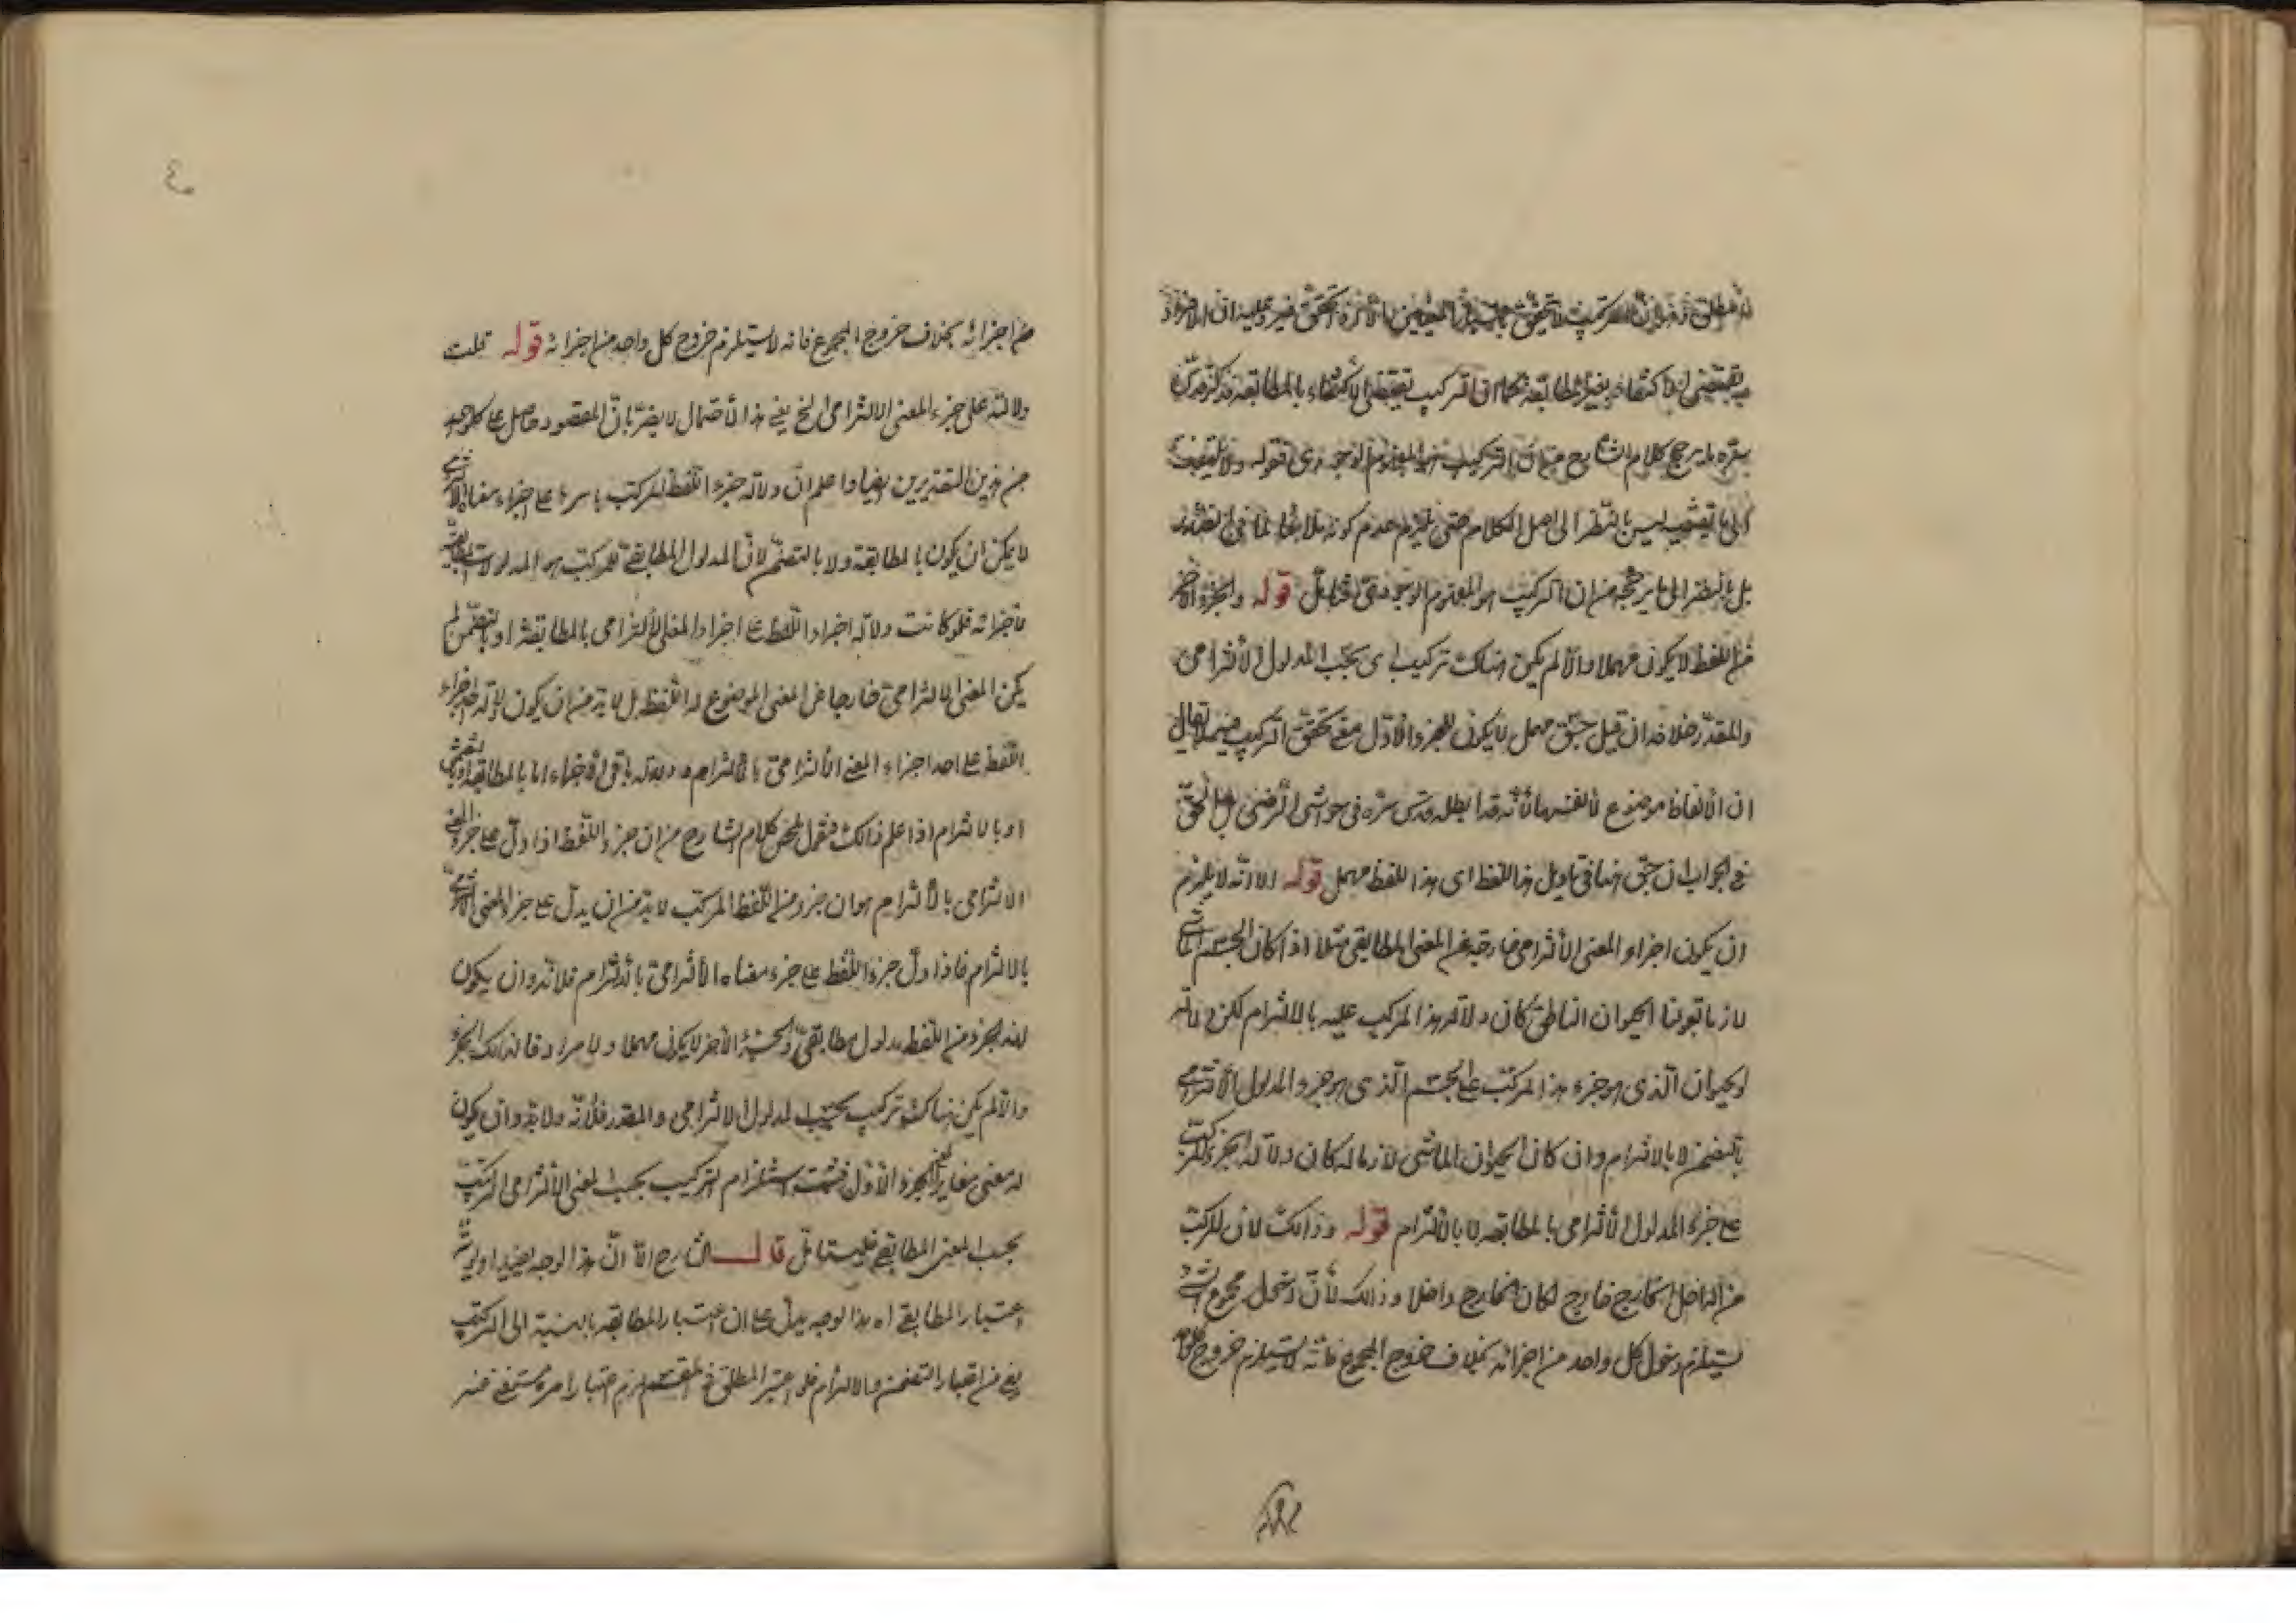 يقتضى الاكتفاء بغير المطابقة كما ان التركيب يقتضى الاكتفاء بالمطابقة
كلام الشارح من ان التركيب هو المفهوم الوجودى قوله ولا يلتفت
ليس بالنظر الى اصل الكلام حتى يلزم عدم كونه ملائما لما فى
بل بالنظر الى ما يرجحه من ان التركيب هو المفهوم الوجودى فتأمل قوله والجزء الآخر
من اللفظ لا يكون مهملا والا لم يكن هناك تركيب اى بحسب المدلول الالتزامى
والمقدر خلافه فان قيل جسق مهمل لا يكون للجزء الاول مع تحقق التركيب فيه لا يقال
ان الالفاظ موضوع لانفسها لانه قد ابطله قدس سره فى حواشى الرضى بل الحق
فى الجواب ان جسق هنا فى تاويل هذا اللفظ اى هذا اللفظ مهمل قوله الا انه لا يلزم
ان يكون اجزاء المعنى الالتزامى خارجة عن المعنى المطابقى مثلا اذا كان الجسم الماشى
لازما لقولنا الحيوان الناطق كان دلالة هذا المركب عليه بالالتزام لكن دلالة
الحيوان الذى هو جزء هذا المركب على الجسم الذى هو جزء المدلول الالتزامى
بالتضمن لا بالالتزام وان كان الحيوان الماشى لازما له كان دلالة الجزء المركب
على جزء المدلول الالتزامى بالمطابقة لا بالالتزام قوله وذلك لان المركب
من الداخل والخارج خارج لكان الخارج داخلا وذلك لان دخول مجموع الشئ
يستلزم دخول كل واحد من اجزائه بخلاف خروج المجموع فانه لا يستلزم خروج كل واحد
من اجزائه بخلاف خروج المجموع فانه لا يستلزم خروج كل واحد من اجزائه قوله قلت
ولالته على جزء المعنى الالتزامى الخ يعنى هذا الاحتمال لا يضر بان المقصود حاصل على كل واحد
من هذين التقديرين ايضا واعلم ان دلالة جزء اللفظ المركب باسرها على اجزاء معناه الالتزامى
لا يمكن ان يكون بالمطابقة ولا بالتضمن لان المدلول المطابقى للمركب هو المدلولات المطابقية
لاجزائه فلو كانت دلالة اجزاء اللفظ على اجزاء المعنى الالتزامى بالمطابقة او بالتضمن لم
يكن المعنى الالتزامى خارجا عن المعنى الموضوع له اللفظ بل لا بد من ان يكون دلالة احد اجزاء
اللفظ على احد اجزاء المعنى الالتزامى بالالتزام ودلالة باقى الاجزاء اما بالمطابقة او بالتضمن
او بالالتزام اذا علم ذلك فنقول محصل كلام الشارح من ان جزء اللفظ اذا دل على جزء المعنى
الالتزامى بالالتزام هو ان جزء من اللفظ المركب لا بد من ان يدل على جزء المعنى الالتزامى
بالالتزام فاذا دل جزء اللفظ على جزء معناه الالتزامى بالالتزام فلا بد وان يكون
لهذا الجزء من اللفظ مدلول مطابقى والجزء الآخر لا يكون مهملا ولا مرادفا لذلك الجزء
والا لم يكن هناك تركيب بحسب المدلول الالتزامى والمقدر خلافه ولا بد وان يكون
له معنى مغاير لمعنى الجزء الاول فثبت استلزام التركيب بحسب المعنى الالتزامى التركيب
بحسب المعنى المطابقى فليتامل قال الشارح الا ان هذا الوجه يفيد اولوية
اعتبار المطابقى اه هذا الوجه يدل على ان اعتبار المطابقة بالنسبة الى المركب
يغنى من اعتبار التضمن والالتزام فلو اعتبر المطلق فى المقسم لزم اعتبار امر مستغنى عنه